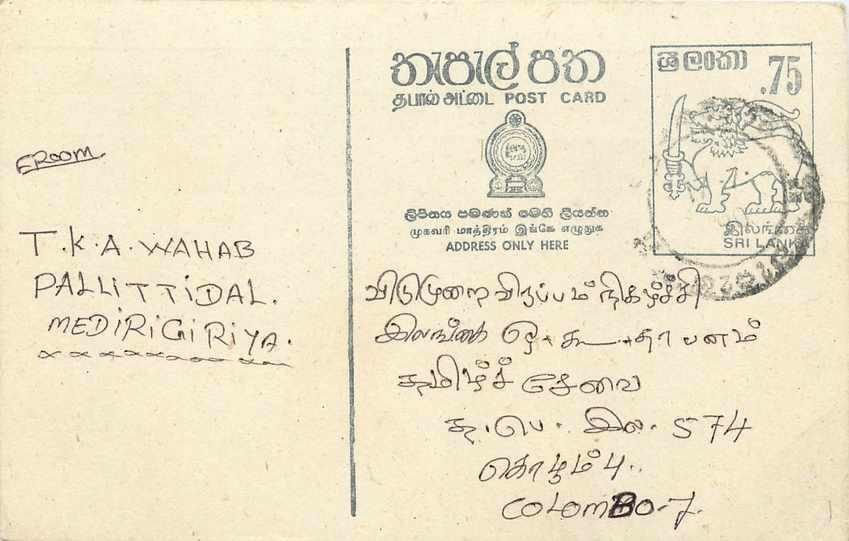 FROOM
T.K.A. WAHAB
PALLITTIDAL.
MEDIRIGIRIYA.
තැපැල් පත
தபால் அட்டை POST CARD
ලිපිනය පමණක් මෙහි ලියන්න
முகவரி மாத்திரம் இங்கே எழுதுக
ADDRESS ONLY HERE
ශ්‍රී ලංකා
.75
இலங்கை
SRI LANKA
விடுமுறை விருப்பம் நிகழ்ச்சி
இலங்கை ஒ. கூ. தாபனம்
தமிழ்ச் சேவை
த.பெ. இல. 574
கொழும்பு..
COLOMBO-7.